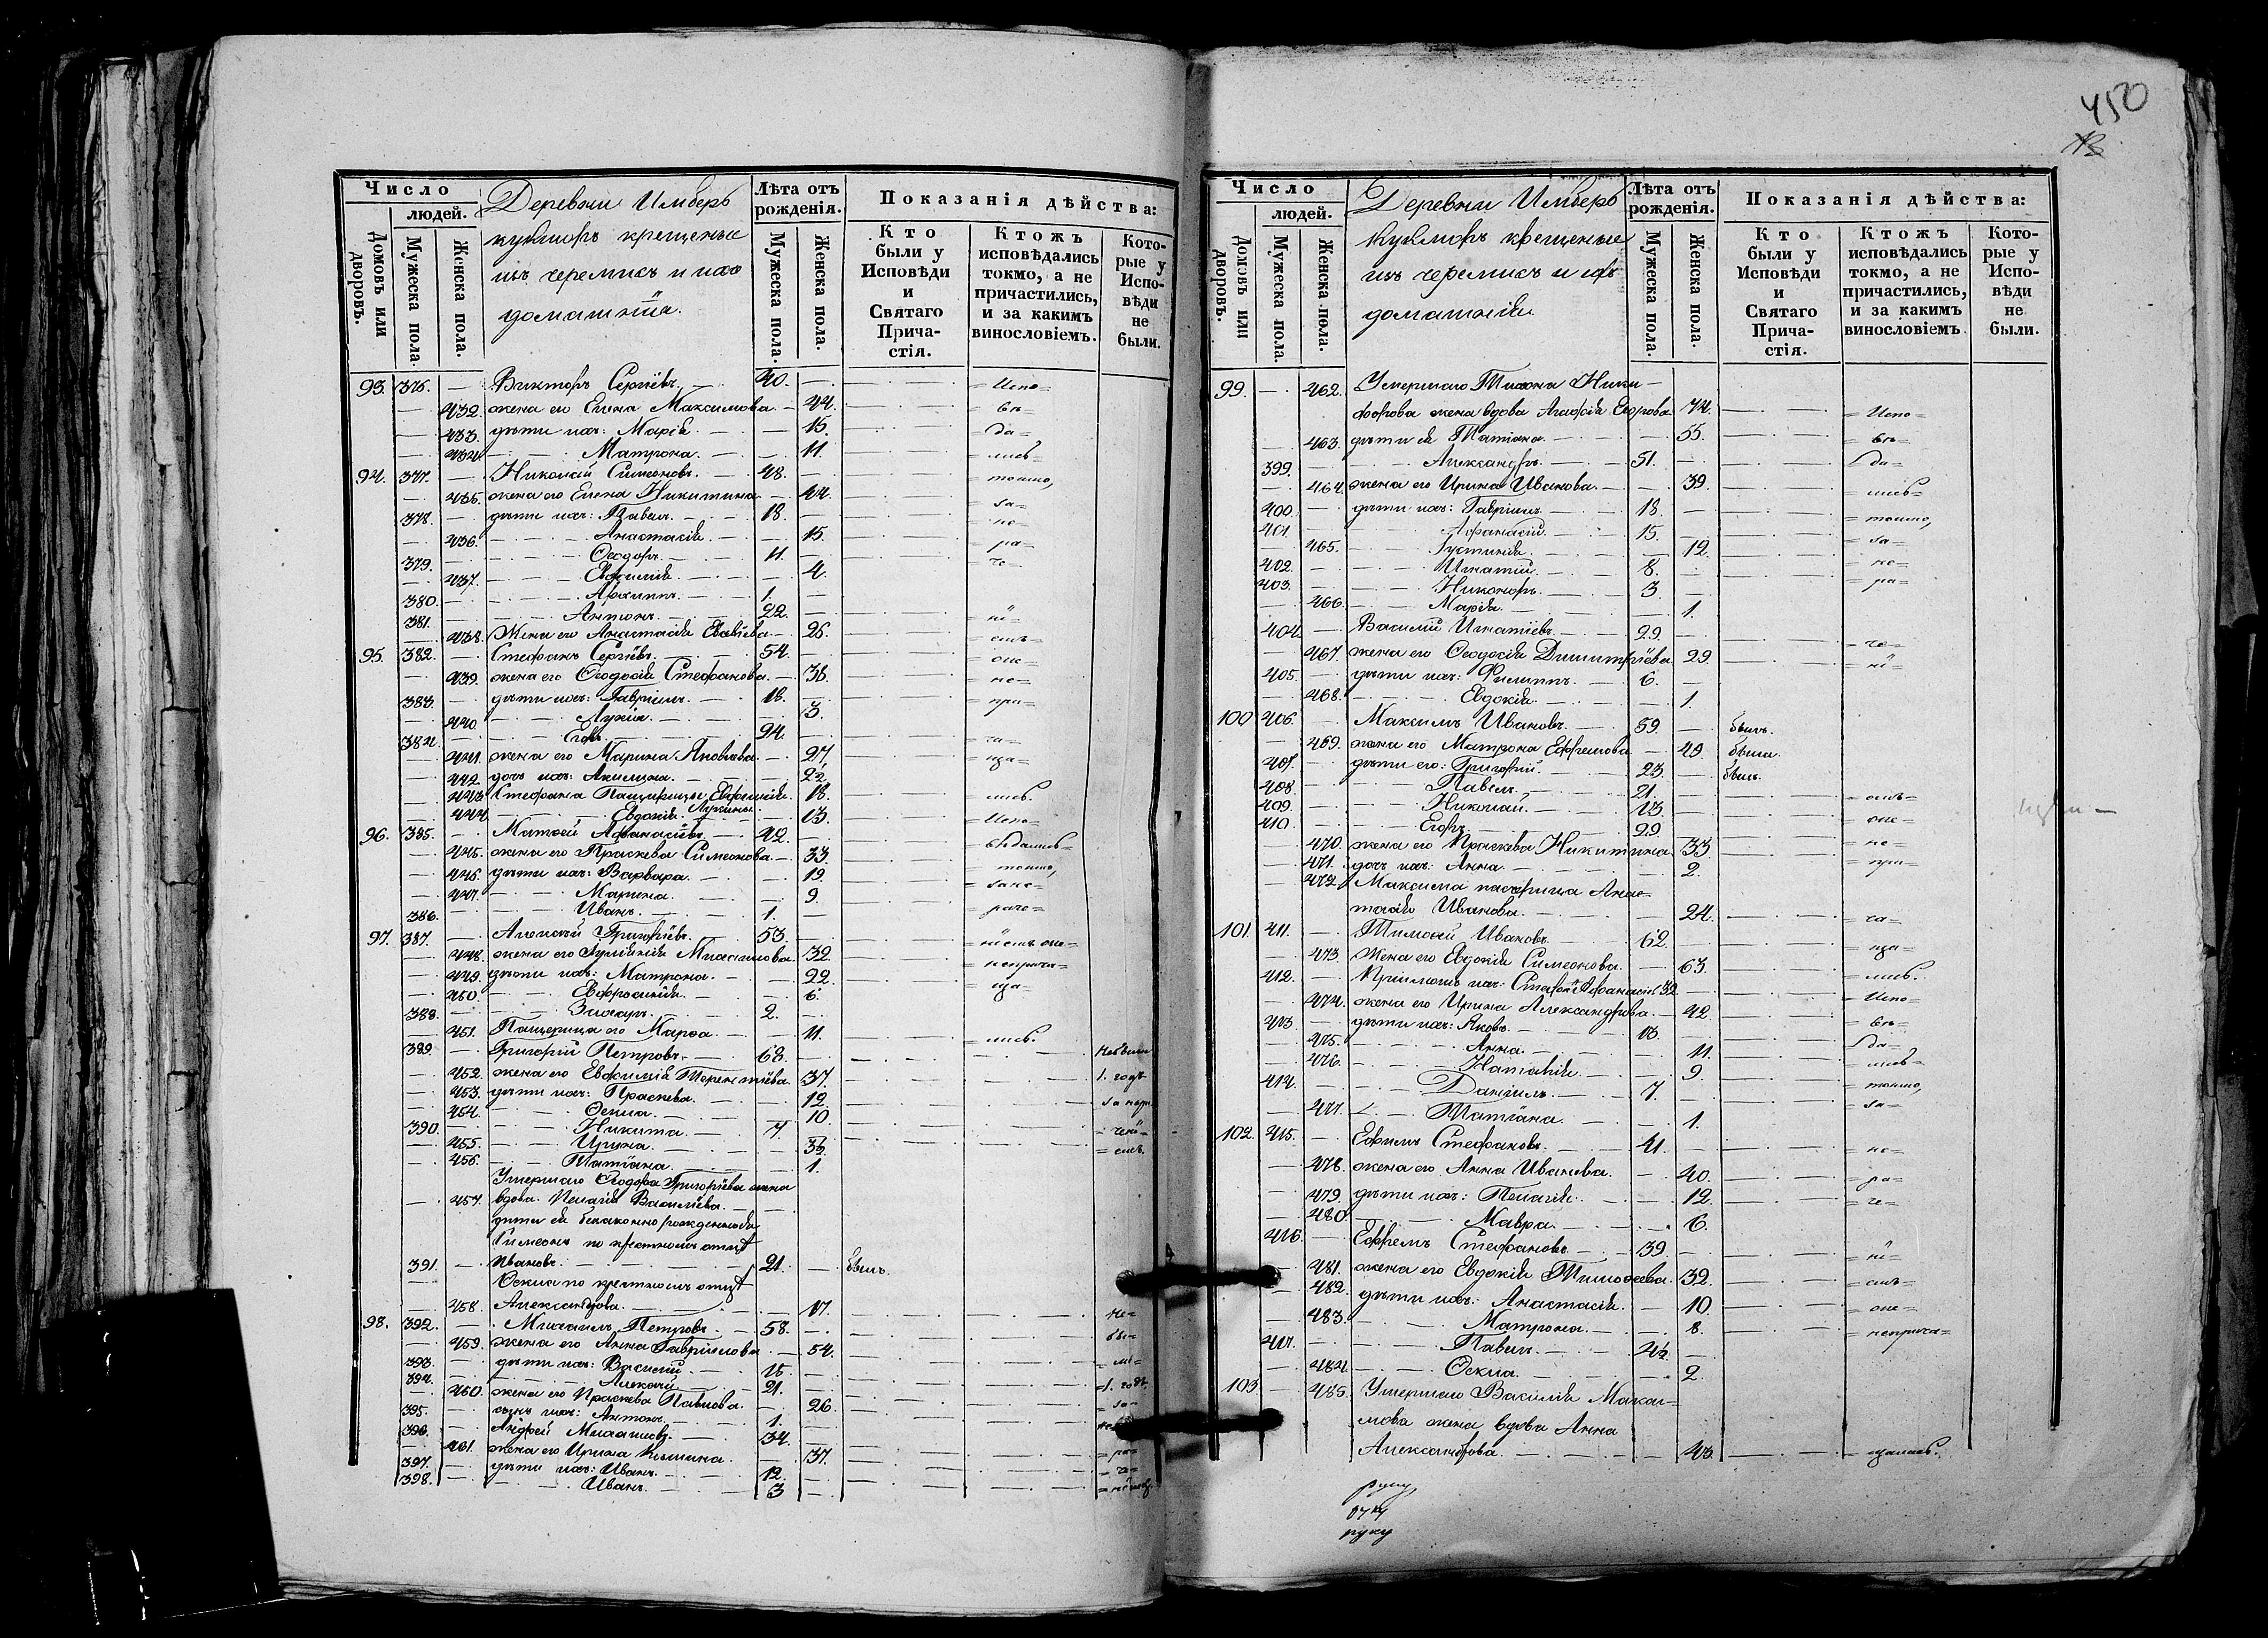 450
Число
людей.
Домовъ или дворовъ.
Мужеска пола.
Женска пола.
Деревни Имберь
кукморъ крещеные
изъ черемисъ и ихъ
домашнiя.
Лѣта отъ рожденія.
Мужеска пола.
Женска пола.
Показанія дѣйства:
Кто были у Исповѣди и Святаго Причастія.
Ктожъ исповѣдались токмо, а не причастились, и за какимъ винословіемъ.
Которые у Исповѣди не были.
93. 376. — Викторъ Сергіевъ. 40. — = Испо=
— 432. жена его Елена Максимова. — 44. = вѣ=
— 433. дѣти ихъ: Марія. — 15. = да=
— 434. Матрона. — 11. = лись=
94. 377. — Николай Симеоновъ. 48. — = токмо,
— 435. жена его Елена Никитина. — 44. = за=
378. — дѣти ихъ: Павелъ. 18. — = не=
— 436. Анастасія. — 15. = ра=
379. — Ѳеодоръ. 11. — = че=
— 437. Евфимія. — 4.
380. — Архиппъ. 1. —
381. — Антонъ. 22. — = ні=
— 438. Жена его Анастасія — 26. = емъ=
95. 382. — Стефанъ Сергіевъ. 54. — = опе=
— 439. жена его Ѳеодосія Стефанова. — 38. = не=
383. — дѣти ихъ: Гавріилъ. 18. — = при=
— 440. Лукія. — 3.
384. — Егоръ. 24. — = ча=
— 441. жена его Марина Яковлева. — 27. = ща=
— 442. дочь ихъ: Акилина. — 22.
— 443. Стефана Пащерицы Евфимія. — 18. = лись.
— 444. Евдокія Лукины. — 13. = Испо=
96. 385. — Матѳей Аѳанасіевъ. 42. — = вѣдались=
— 445. жена его Праскева Симеонова. — 33. = токмо,
— 446. дѣти ихъ: Варвара. — 19. = зане=
— 447. Марина. — 9. = раче=
386. — Иванъ. 1. —
97. 387. — Алексѣй Григорьевъ. 53. — = ніемъ опе=
— 448. жена его Гликерія Михаилова. — 32. = неприча=
— 449. дѣти ихъ: Матрона. — 22. = ща=
— 450. Евфросинія. — 6.
388. — Захаръ. 2. —
— 451. Пащерица его Марѳа. — 11. = лись.
389. — Григорій Петровъ. 68. — Небыли
— 452. жена его Евфимія Терентіева. — 37. 1. годъ
— 453. дѣти ихъ: Праскева. — 12. за нера
— 454. Ѳекла. — 10.
390. — Никита. 7. — = чені=
— 455. Ирина. — 3½. = емъ.
— 456. Татіана. — 1.
Умершаго Ѳеодора Григоріева жена
— 457. вдова Пелагія Василіева. — —
дѣти ея беззаконно рожденныя
Симеонъ по крестномъ отцѣ
391. — Ивановъ. 21. — былъ.
Ѳекла по крестномъ отцѣ
— 458. Александрова. — 17.
98. 392. — Михаилъ Петровъ. 58. — не=
— 459. жена его Анна Гавріилова. — 54. = бы=
393. — дѣти ихъ: Василій. 15. — = ли=
394. — Алексѣй. 21. — = 1. годъ
— 460. жена его Праскева Павлова. — 26. = за=
395. — сынъ ихъ: Антонъ. 1. —
396. — Андрей Михаиловъ. 34. —
— 461. жена его Ирина — 37. = ра=
397. — дѣти ихъ: Иванъ. 12. — = че=
398. — Иванъ. 3 —
Число
людей.
Домовъ или дворовъ.
Мужеска пола.
Женска пола.
Деревни Имберь
Кукморъ крещеные
изъ черемисъ и ихъ
домашнія
Лѣта отъ рожденія.
Мужеска пола.
Женска пола.
Показанія дѣйства:
Кто были у Исповѣди и Святаго Причастія.
Ктожъ исповѣдались токмо, а не причастились, и за какимъ винословіемъ
Которые у Исповѣди не были.
99. — 462. Умершаго Тихона Ники-
форова жена вдова Агафія Егорова — 74. = Испо=
— 463. дѣти ея Татіана. — 55. = вѣ=
399. — Александръ. 51. — = да=
— 464. жена его Ирина Иванова. — 39. = лись=
400. — дѣти ихъ: Гавріилъ. 18. — = токмо,
401. — Аѳанасій. 15. — = за=
— 465. Іустинія. — 12.
402. — Игнатій. 8. — = не=
403. — Никоноръ. 3 — = ра=
— 466. Марія. — 1.
404. — Василій Игнатіевъ. 29. — = че=
— 467. жена его Ѳеодосія Димитріева — 29. = ні=
405. — дѣти ихъ: Филиппъ. 6. —
— 468. Евдокія. — 1.
100 406. — Максимъ Ивановъ. 59. — былъ.
— 469. жена его Матрона Ефремова. — 49. была.
407. — дѣти его: Григорій. 23. — былъ.
408. — Павелъ. 21. — = емъ=
409. — Николай. 13. — = опе=
410. — Егоръ 29. — = не=
— 470. жена его Праскева Никитина. — 33. = при=
— 471. дочь ихъ: Анна. — 2.
— 472. Максима пасчерица Анас-
тасія Иванова. — 24. = ча=
101. 411. — Тимоѳей Ивановъ. 62. — = ща=
— 473. Жена его Евдокія Симеонова. — 63. = лись.
412. — Пріимышъ ихъ: Стефанъ Аѳанасіевъ 32. — = Испо=
— 474. жена его Ирина Александрова. — 42. = вѣ=
413. — дѣти ихъ: Яковъ. 13. — = да=
— 475. Анна. — 11. = лись=
— 476. Наталія. — 9. = токмо,
414. — Даніилъ. 7. — = за=
— 477. Татіана. — 1.
102. 415. — Ефимъ Стефановъ. 41. — = не=
— 478. жена его Анна Иванова. — 40. = ра=
— 479. дѣти ихъ: Пелагія. — 12. = че=
— 480. Мавра. — 6.
416. — Ефремъ Стефановъ. 39. — = ні=
— 481. жена его Евдокія Тимоѳеева. — 32. = емъ=
— 482. дѣти ихъ: Анастасія. — 10. = опе=
— 483. Матрона. — 8. = неприча=
417. — Павелъ. 4½. —
— 484. Ѳекла. — 2.
103. — 485. Умершаго Василія Макси-
мова жена вдова Анна
Александрова. — 43. = щалась.
руку